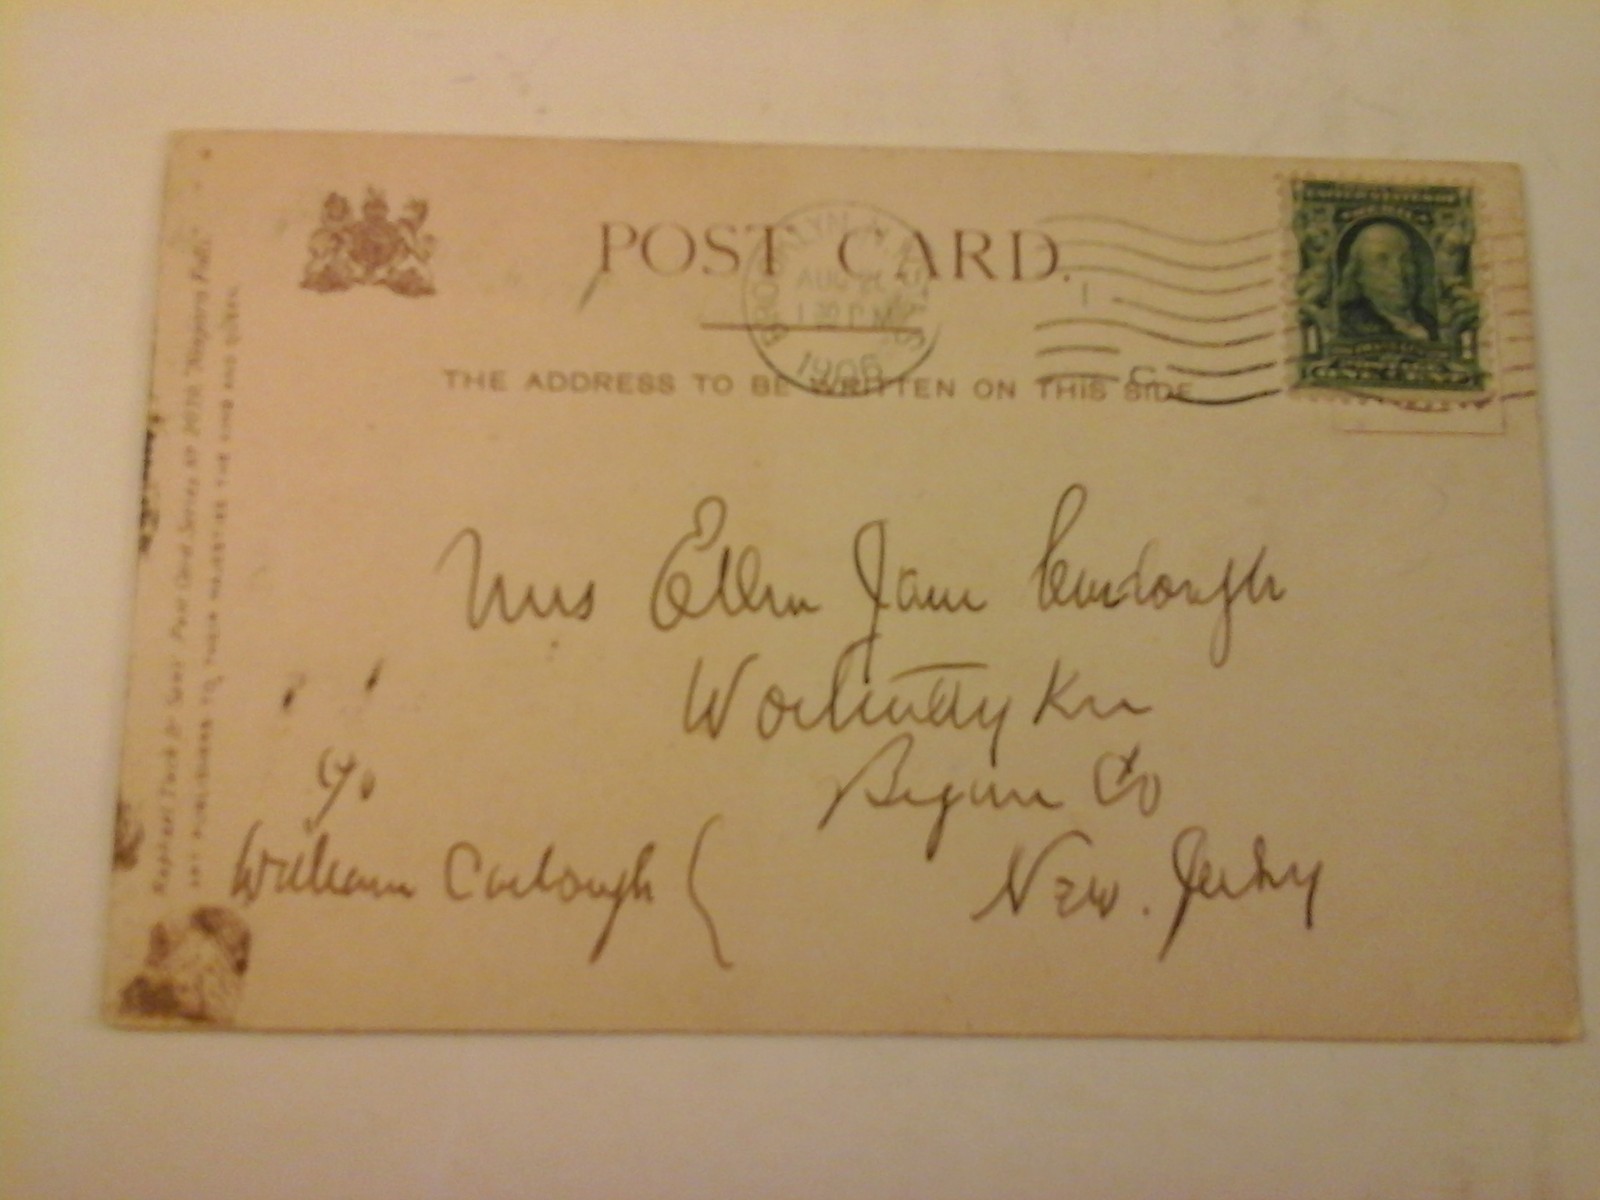 POST CARD.
BROOKLYN, N.Y.
AUG
1 30 PM
1906
THE ADDRESS TO BE WRITTEN ON THIS SIDE
1
CENT
Mrs Ellen Jane Carlough
Wortendyke
Bergen Co
New. Jersey
c/o
William Carlough
Raphael Tuck & Sons' Post Card Series No 2076 "Niagara Falls"
ART PUBLISHERS TO THEIR MAJESTIES THE KING AND QUEEN